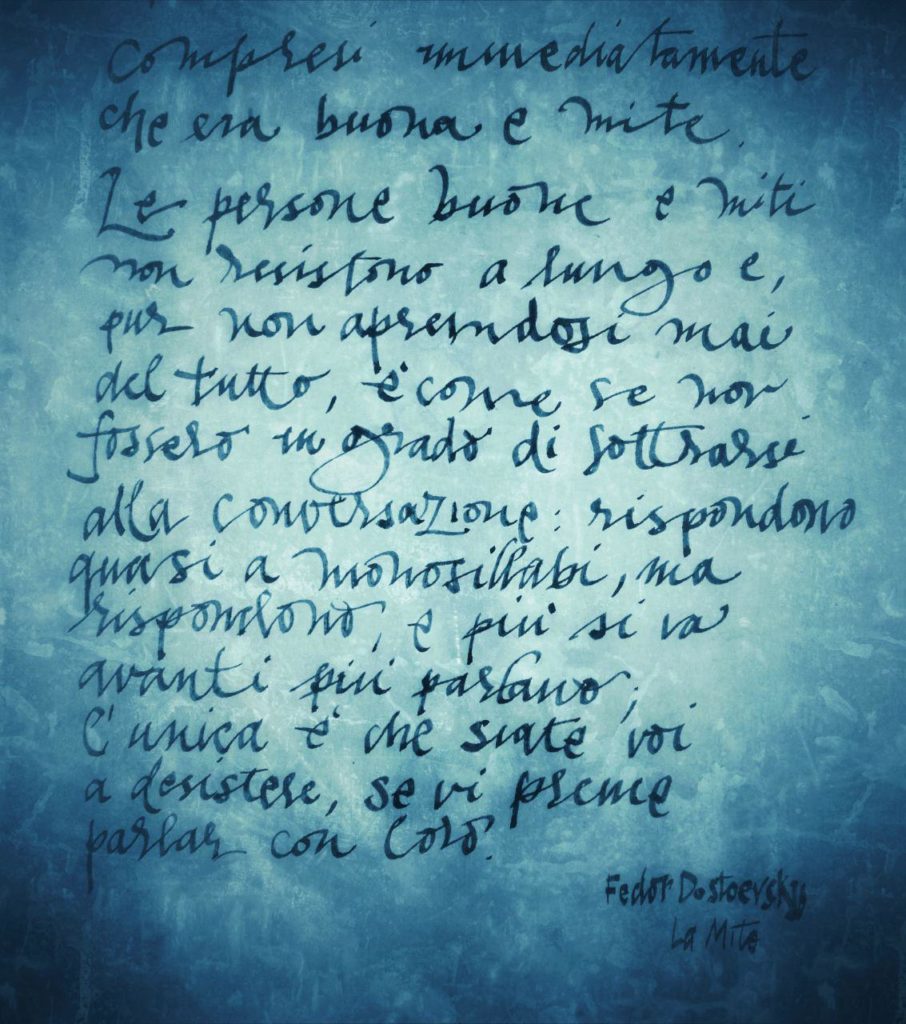 Compresi immediatamente
che era buona e mite.
Le persone buone e miti
non resistono a lungo e,
pur non aprendosi mai
del tutto, è come se non
fossero in grado di sottrarsi
alla conversazione: rispondono
quasi a monosillabi, ma
rispondono, e più si va
avanti più parlano;
l'unica è che siate voi
a desistere, se vi preme
parlar con loro.
Fedor Dostoevsky
La Mite